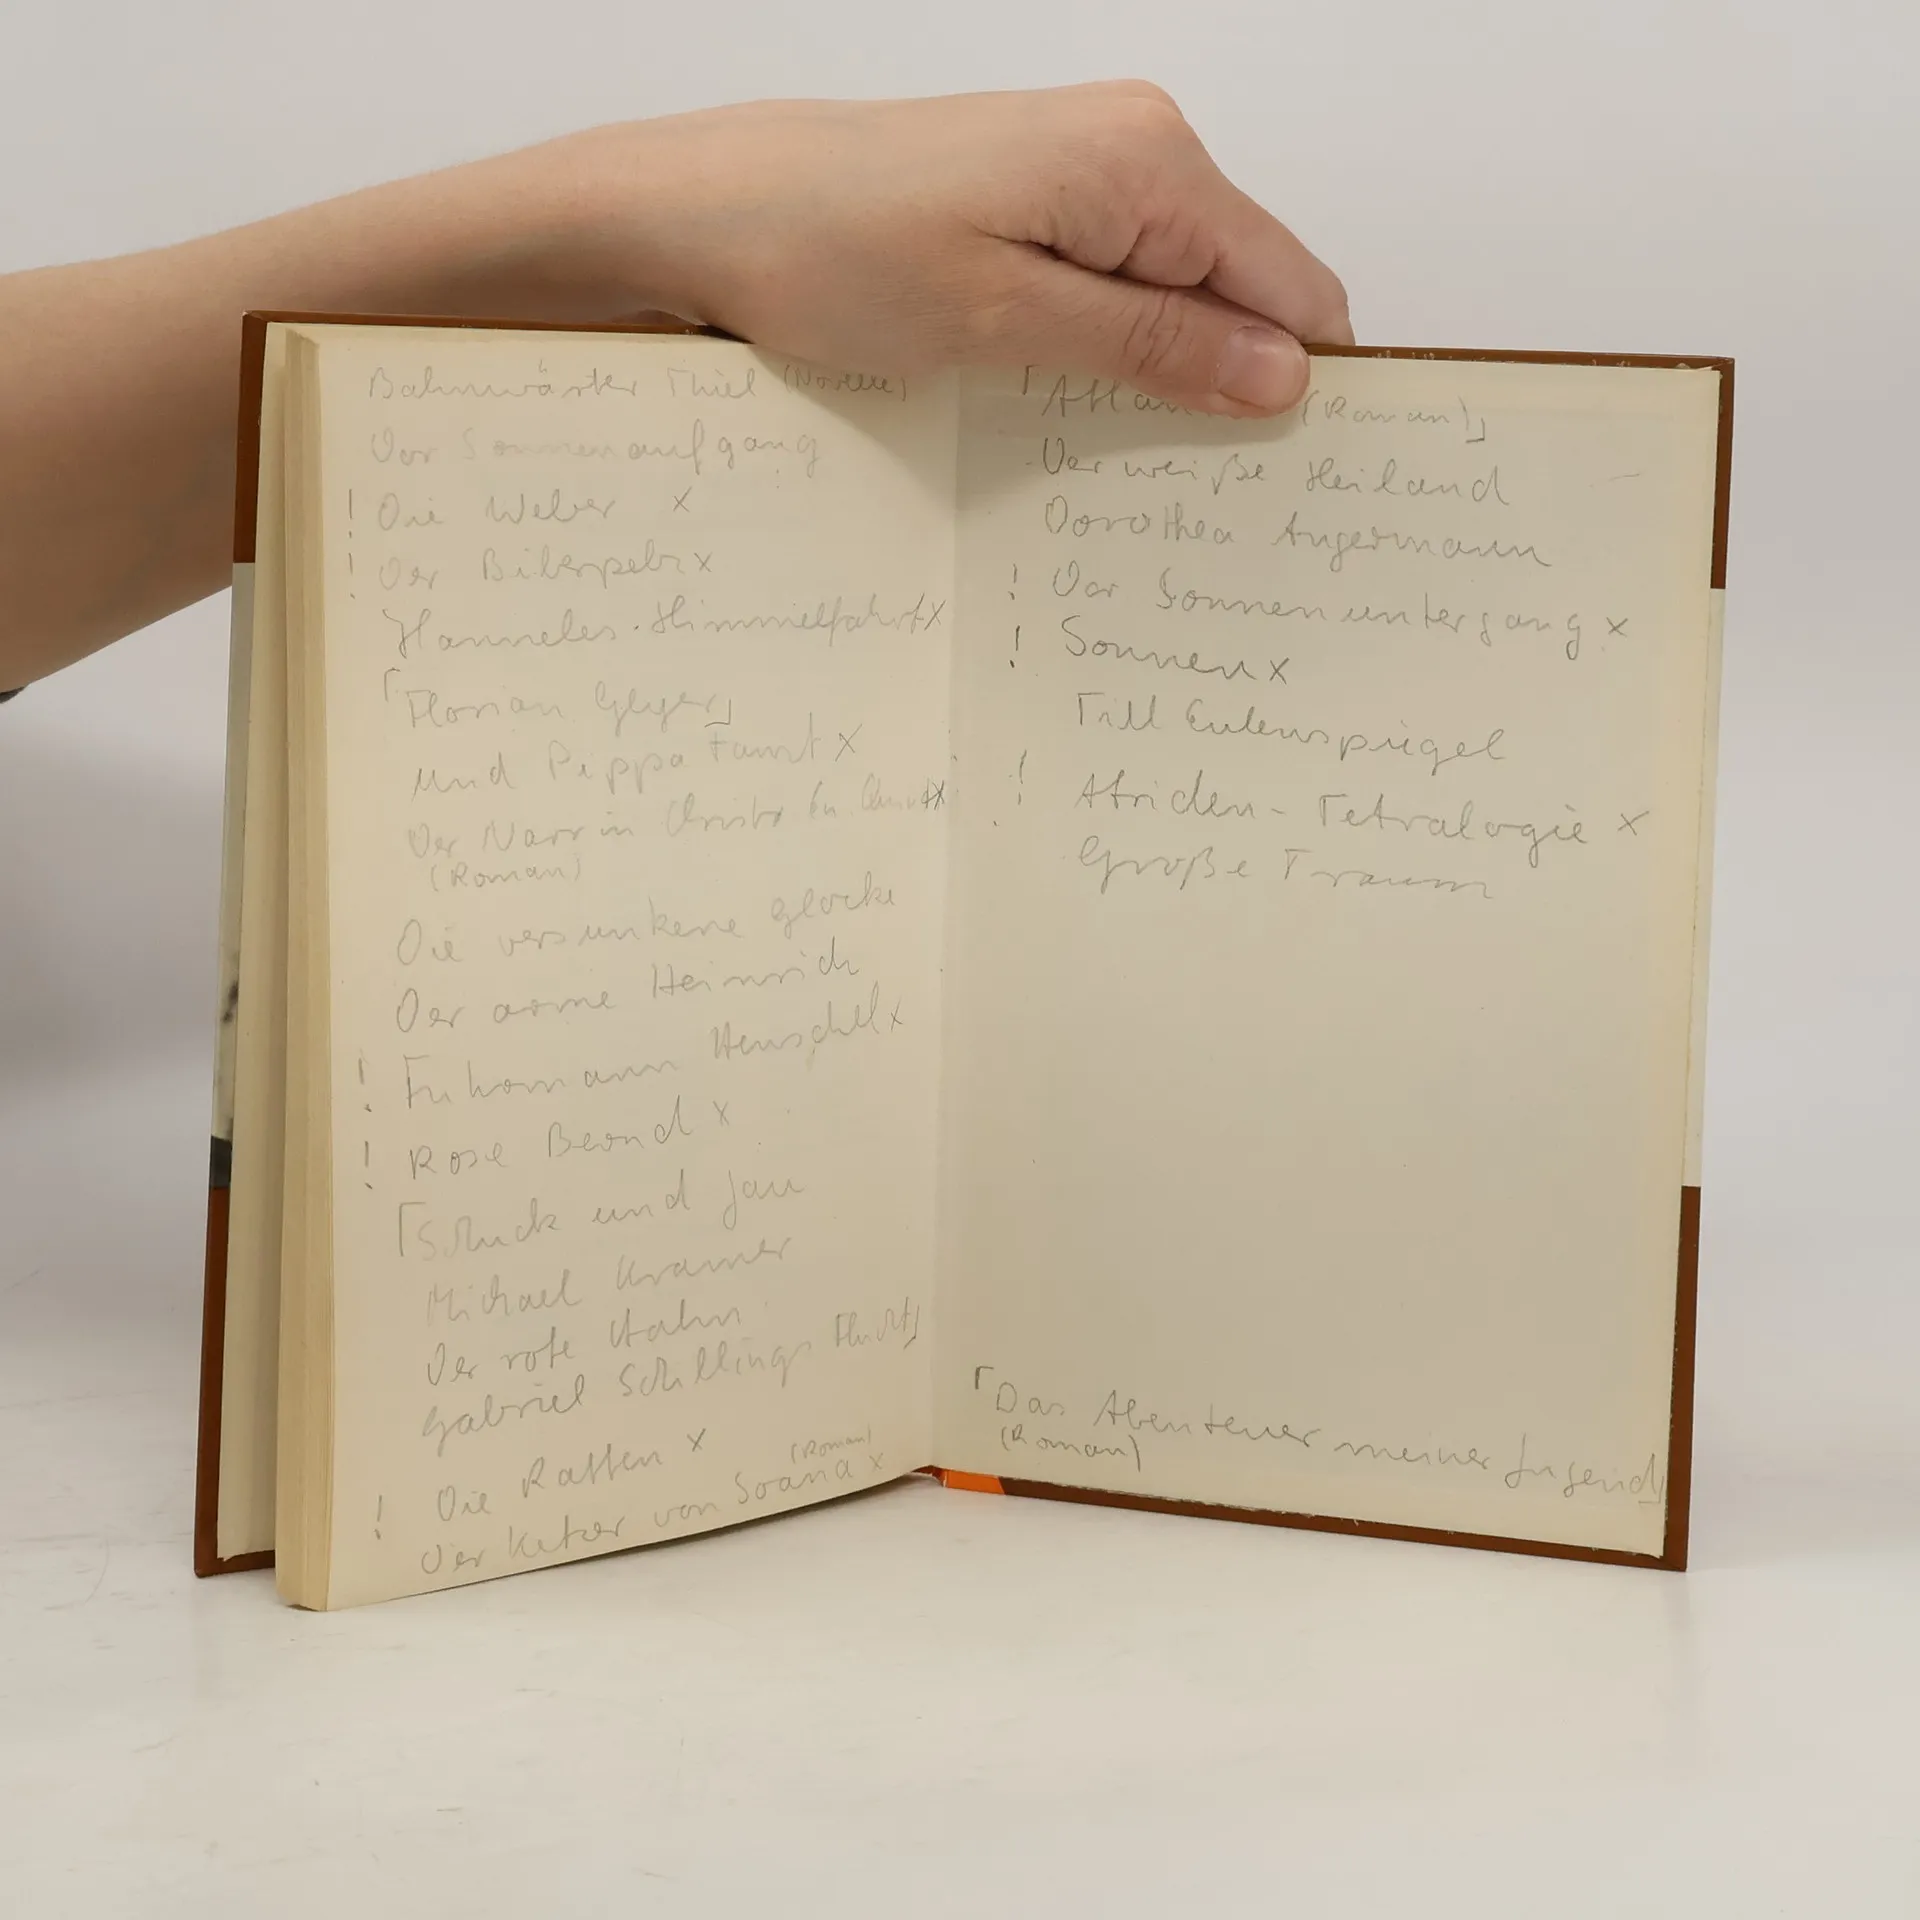 Bahnwärter Thiel (Novelle)
Vor Sonnenaufgang
! Die Weber x
! Der Biberpelz x
Hanneles Himmelfahrt x
「Florian Geyer」
Und Pippa Tanzt x
Der Narr in Christo Em. Quint x
(Roman)
Die versunkene Glocke
Der arme Heinrich
! Fuhrmann Henschel x
! Rose Bernd x
「Schluck und Jau
Michael Kramer
Der rote Hahn
Gabriel Schillings Flucht」
! Die Ratten x
Der Ketzer von Soana (Roman) x
「Atlan (Roman)」
Der weiße Heiland
Dorothea Angermann
! Vor Sonnenuntergang x
! Sonnen x
Till Eulenspiegel
! Atriden-Tetralogie x
Große Traum
「Das Abenteuer meiner Jugend」
(Roman)